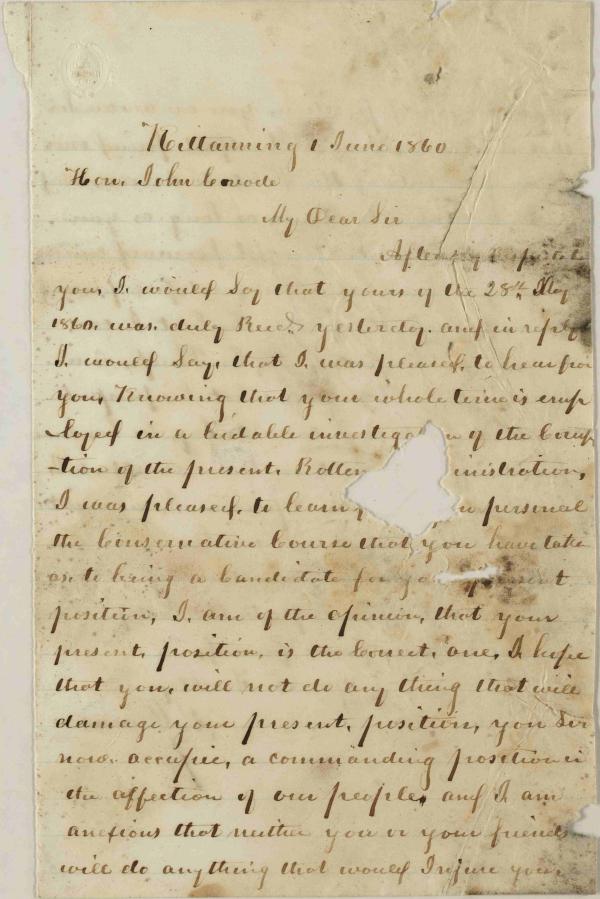 Kittanning 1 June 1860
Hon. John Covode
My Dear Sir
After my Respects to
you, I would Say that yours of the 28th May
1860. was duly Recd yesterday. and in reply
I would Say, that I was pleased, to hear from
you, Knowing that your whole time is emp
-loyed in a ludable investigat n of the Corup
-tion of the present, Rotten ministration,
I was pleased, to learn personal
the Conservative Course that you have take
as to being a Candidate for your present
position, I, am of the opinion, that your
present, position, is the Correct, one, I hope
that you, will not do any thing that will
damage your present, position, you Sir
now. occupie, a commanding position in
the affection of our people, and I am
anxious that neither you or your friends
will do anything that would Injure you,